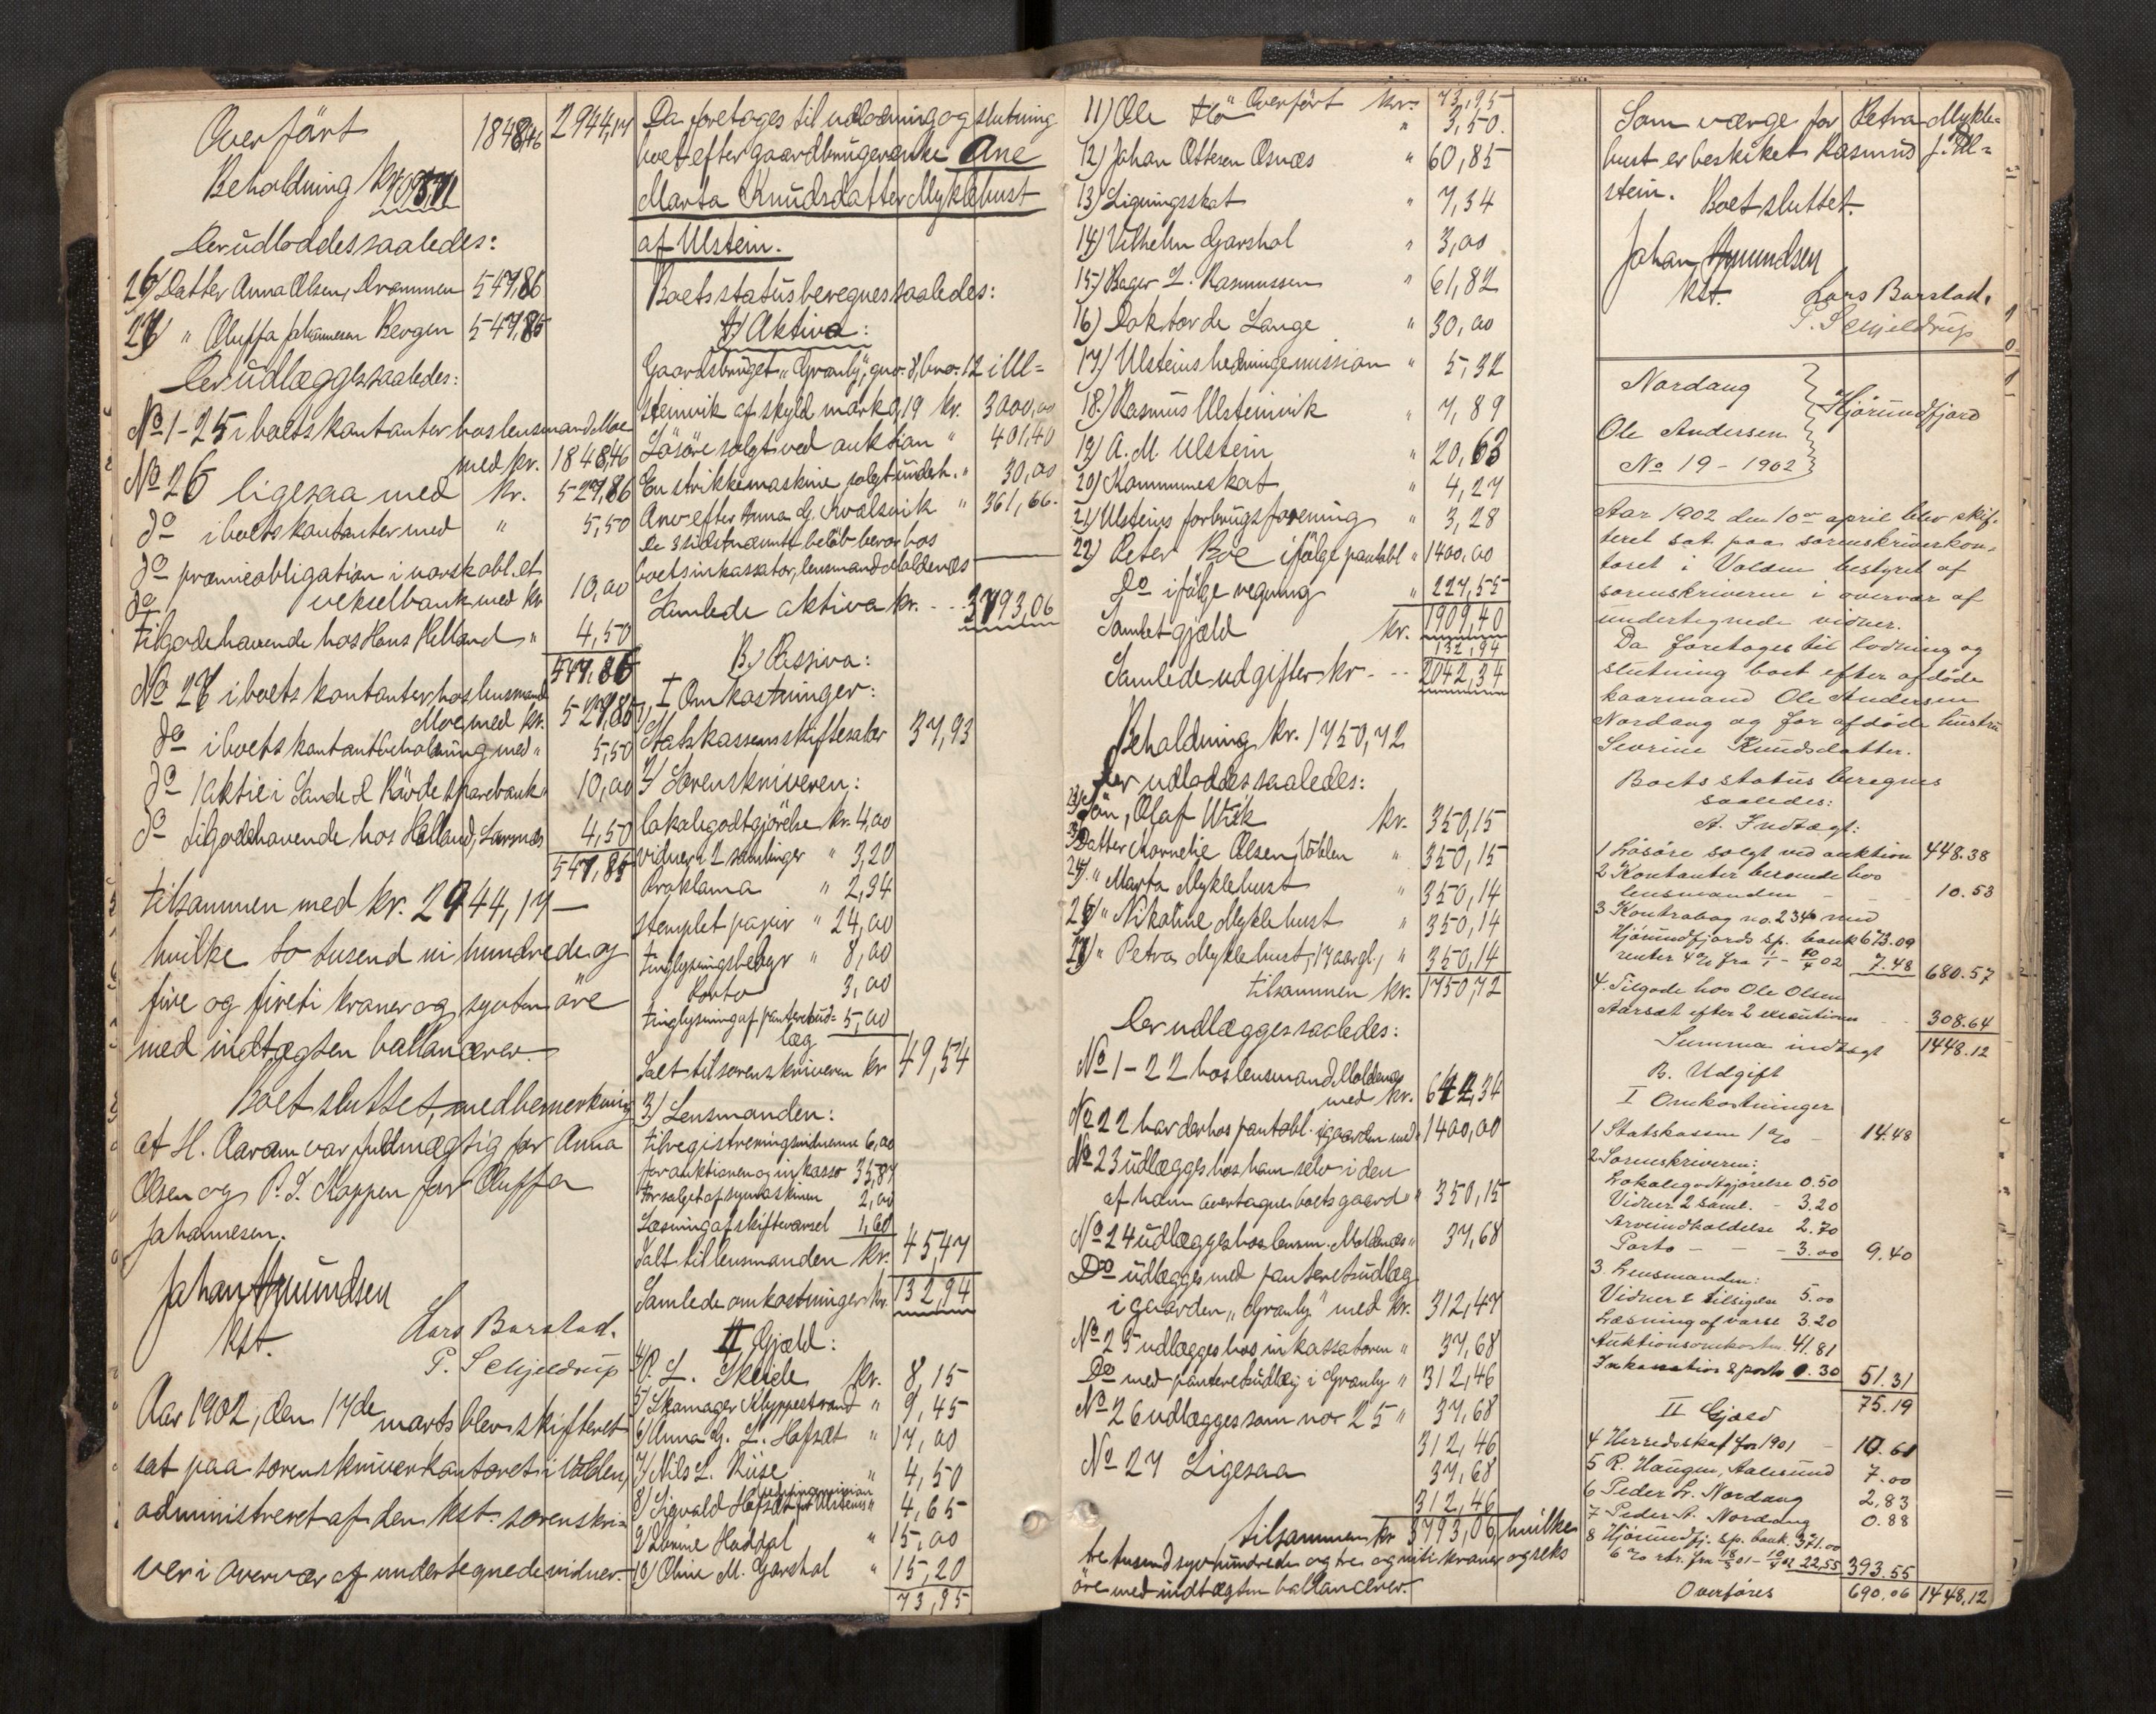 Overført 1848,46 2944,17
Beholdning kr. 1095,71
der udloddes saaledes:
26) Datter Anna Olsen, Drammen 547,86
27) " Oluffa Johannesen Bergen 547,85
der udlægges saaledes:
No 1-25 i boets kontanter hos lensmand Moe
med kr. 1848,46
No 26 ligesaa med kr. 527,86
do i boets kontanter med " 5,50
do præmieobligation i norsk obl. et
vekselbank med kr 10,00
do tilgodehavende hos Hans Helland " 4,50
547,86
No 27 i boets kontanter hos lensmand
Moe med kr. 527,85
do i boets kontantbeholdning med " 5,50
do 1 aktie i Sande & Rovde sparebank " 10,00
do tilgodehavende hos Helland, Larsnæs 4,50
547,85
tilsammen med kr. 2944,17 —
hvilke to tusend ni hundrede og
fire og fireti kroner og sytten øre
med indtægten ballancerer.
Boet sluttet, med bemerkning
at H. Aaram var fuldmægtig for Anna
Olsen og P. J. Koppen for Oluffa
Johannesen.
Johan Amundsen
kst.
Lars Barstad.
P. Schjeldrup
Aar 1902, den 17de marts blev skifteret
sat paa sorenskriverkontoret i Volden,
administreret af den kst. sorenskri=
ver i overvær af undertegnede vidner.
Da foretoges til udlodning og slutning
boet efter gaardbrugerenke Ane
Marta Knudsdatter Myklebust
af Ulstein.
Boets status beregnes saaledes:
A) Aktiva:
Gaardsbruget "Granly", gno. 8, bno. 12 i Ul=
steinvik af skyld mark 0,19 kr. 3000,00
Løsøre solgt ved auktion " 401,40
En strikkemaskine solgt underh. " 30,00
Arv efter Anna G. Kvalsvik " 361,66
De 3 sidstnævnte beløb beror hos
boets inkassator, lensmand Moldenæs
Samlede aktiva kr. - - 3793,06
B) Passiva:
I Omkostninger:
1) Statskassens skifteafgift 37,93
2) Sorenskriveren:
lokalegodtgjørelse kr. 4,00
vidner 2 samlinger " 3,20
Proklama " 2,34
stemplet papir " 24,00
tinglysningsgebyr " 8,00
Porto 3,00
tinglysning af panteretsud= 5,00
læg
Ialt til sorenskriveren kr 49,54
3) Lensmanden:
til registreringsvidnerne 6,00
for auktionen og inkasso 35,87
for salget af symaskinen 2,00
Læsning af skiftevarsel 1,60
Ialt til lensmanden kr. 45,47
Samlede omkostninger kr. 132,94
II Gjæld:
4) P. L. Skeide kr. 8,15
5) Skomager Klyppestrand " 9,45
6) Anna G. L. Hofsæt " 17,00
7) Nils L. Ruse " 4,50
8) Sigvald Hofsæt for Ulsteins hedningemission " 4,65
9) Lovine Haddal " 15,00
10) Oline M. Garshol " 15,20
73,95
Overført kr. 73,95
11) Ole Hø " 3,50.
12) Johan Ottesen Osnæs " 60,85
13) Ligningsskat " 7,34
14) Vilhelm Garshol " 3,00
15) Bager L. Rasmussen " 61,82
16) Doktor de Lange " 30,00
17) Ulsteins hedningemission " 5,32
18) Rasmus Ulsteinvik " 7,89
19) A. M. Ulstein " 20,63
20) Kommuneskat " 4,27
21) Ulsteins forbrugsforening " 3,28
22) Peter Boe ifølge pantobl " 1400,00
Do ifølge regning " 227,55
Samlet gjæld kr. 1909,40
132,94
Samlede udgifter kr - - 2042,34
Beholdning kr. 1750,72
der udloddes saaledes:
23) Søn, Olaf Wiik kr. 350,15
24) Datter Kornelie Olsen, Volden " 350,15
25) " Marta Myklebust " 350,14
26) " Nikoline Myklebust " 350,14
27) " Petra Myklebust, 17 aar gl., " 350,14
tilsammen kr. 1750,72
der udlægges saaledes:
No 1-22 hos lensmand Moldenæs
med kr. 642,34
No 22 har derhos pantobl. i gaarden med " 1400,00
No 23 udlægges hos ham selv i den
af ham overtagne boets gaard " 350,15
No 24 udlægges hos lensm. Moldenæs " 37,68
Do udlægges med panteretsudlæg
i gaarden "Granly" med kr. 312,47
No 25 udlægges hos inkassatoren " 37,68
Do med panteretsudlæg i Granly " 312,46
No 26 udlægges som no 25 " 37,68
312,46
No 27 Ligesaa 37,68
312,46
tilsammen kr 3793,06, hvilke
tre tusend syv hundrede og tre og niti kroner og seks
øre med indtægten ballancerer.
Som værge for Petra Mykle=
bust er beskikket Rasmus J. Ul=
stein. Boet sluttet.
Johan Amundsen
kst.
Lars Barstad.
P. Schjeldrup
Nordang
Ole Andersen
No 19 - 1902
Hjørundfjord
Aar 1902 den 10de april blev skif-
teret sat paa sorenskriverkon-
toret i Volden bestyret af
sorenskriveren i overvær af
undertegnede vidner.
Da foretoges til lodning og
slutning boet efter afdøde
kaarmand Ole Andersen
Nordang og før afdøde hustru
Sevrine Knudsdatter.
Boets status beregnes
saaledes:
A. Indtægt:
1 Løsøre solgt ved auktion 448.38
2 Kontanter beroende hos
lensmanden - - 10.53
3 Kontrabog no. 2346 med
Hjørundfjords sp. bank 673.09
renter 4% fra 1/1 - 10/4 02 7.48 680.57
4. Tilgode hos Ole Olsen
Aarsæt efter 2 executioner - - 308.64
Summa indtægt 1448.12
B. Udgift
I Omkostninger
1 Statskassen 1% - 14.48
2. Sorenskriveren:
Lokalegodtgjørelse 0.50
Vidner 2 saml. - 3.20
Arveindkaldelse 2.70
Porto - - - 3.00 9.40
3. Lensmanden:
Vidner & tilsigelse 5.00
Læsning af varsel 3.20
Auktionsomkostn. 41.81
Inkassation & porto 1.30 51.31
75.19
II Gjæld
4 Herredsskat for 1901 - 10.61
5 R. Haugen, Aalesund 7.00
6 Peder Lr. Nordang 2,83
7 Peder A. Nordang 0.88
8 Hjørundfj. sp. bank 371.00
6% rtr. fra 18/3 01 - 10/4 02 22,55 393.55
Overføres 690.06 1448,12